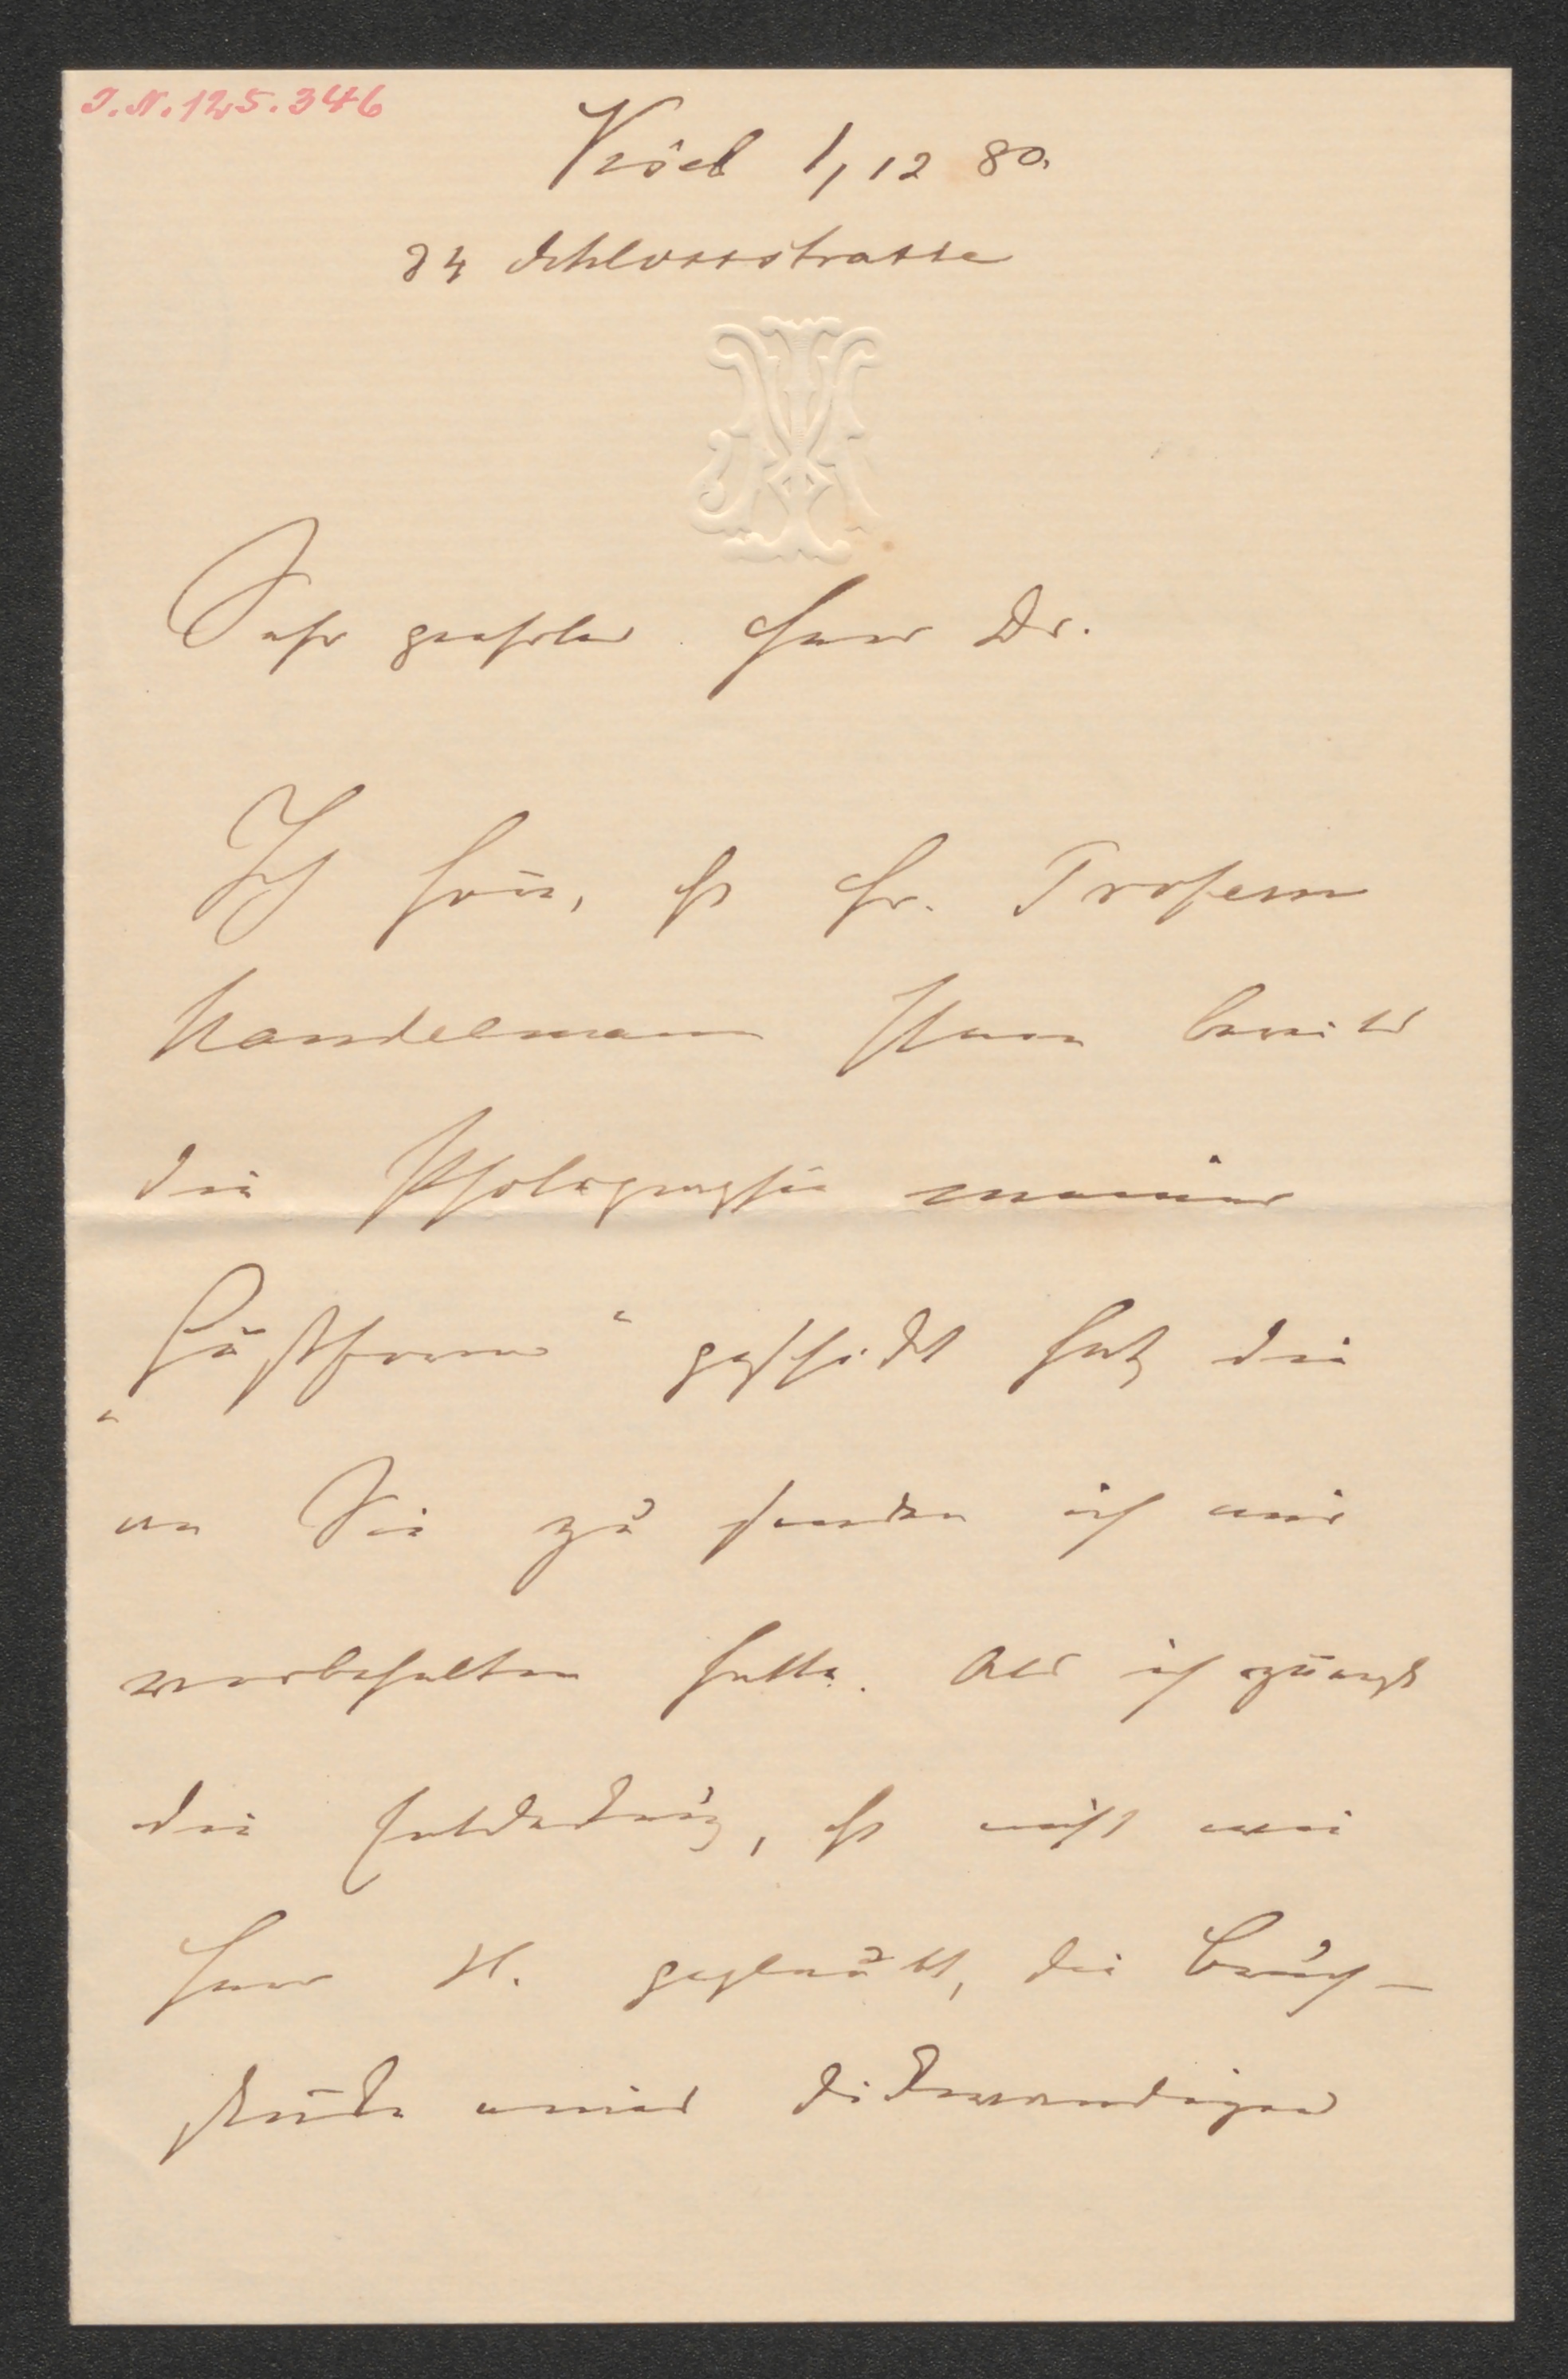 J.N. 125.346
Kiel 1, 12 80.
24 Schlossstrasse
JM
Sehr geehrter Herr Dr.
Ich höre, dß Hr. Professor
Handelmann Ihnen bereits
die Photographie meiner
„Gußform“ geschickt hat, die
an Sie zu senden ich mir
vorbehalten hatte. Als ich zuerst
die Entdeckung, dß nicht wie
Herr H. geglaubt, die Bruch-
stücke einer dickwandigen